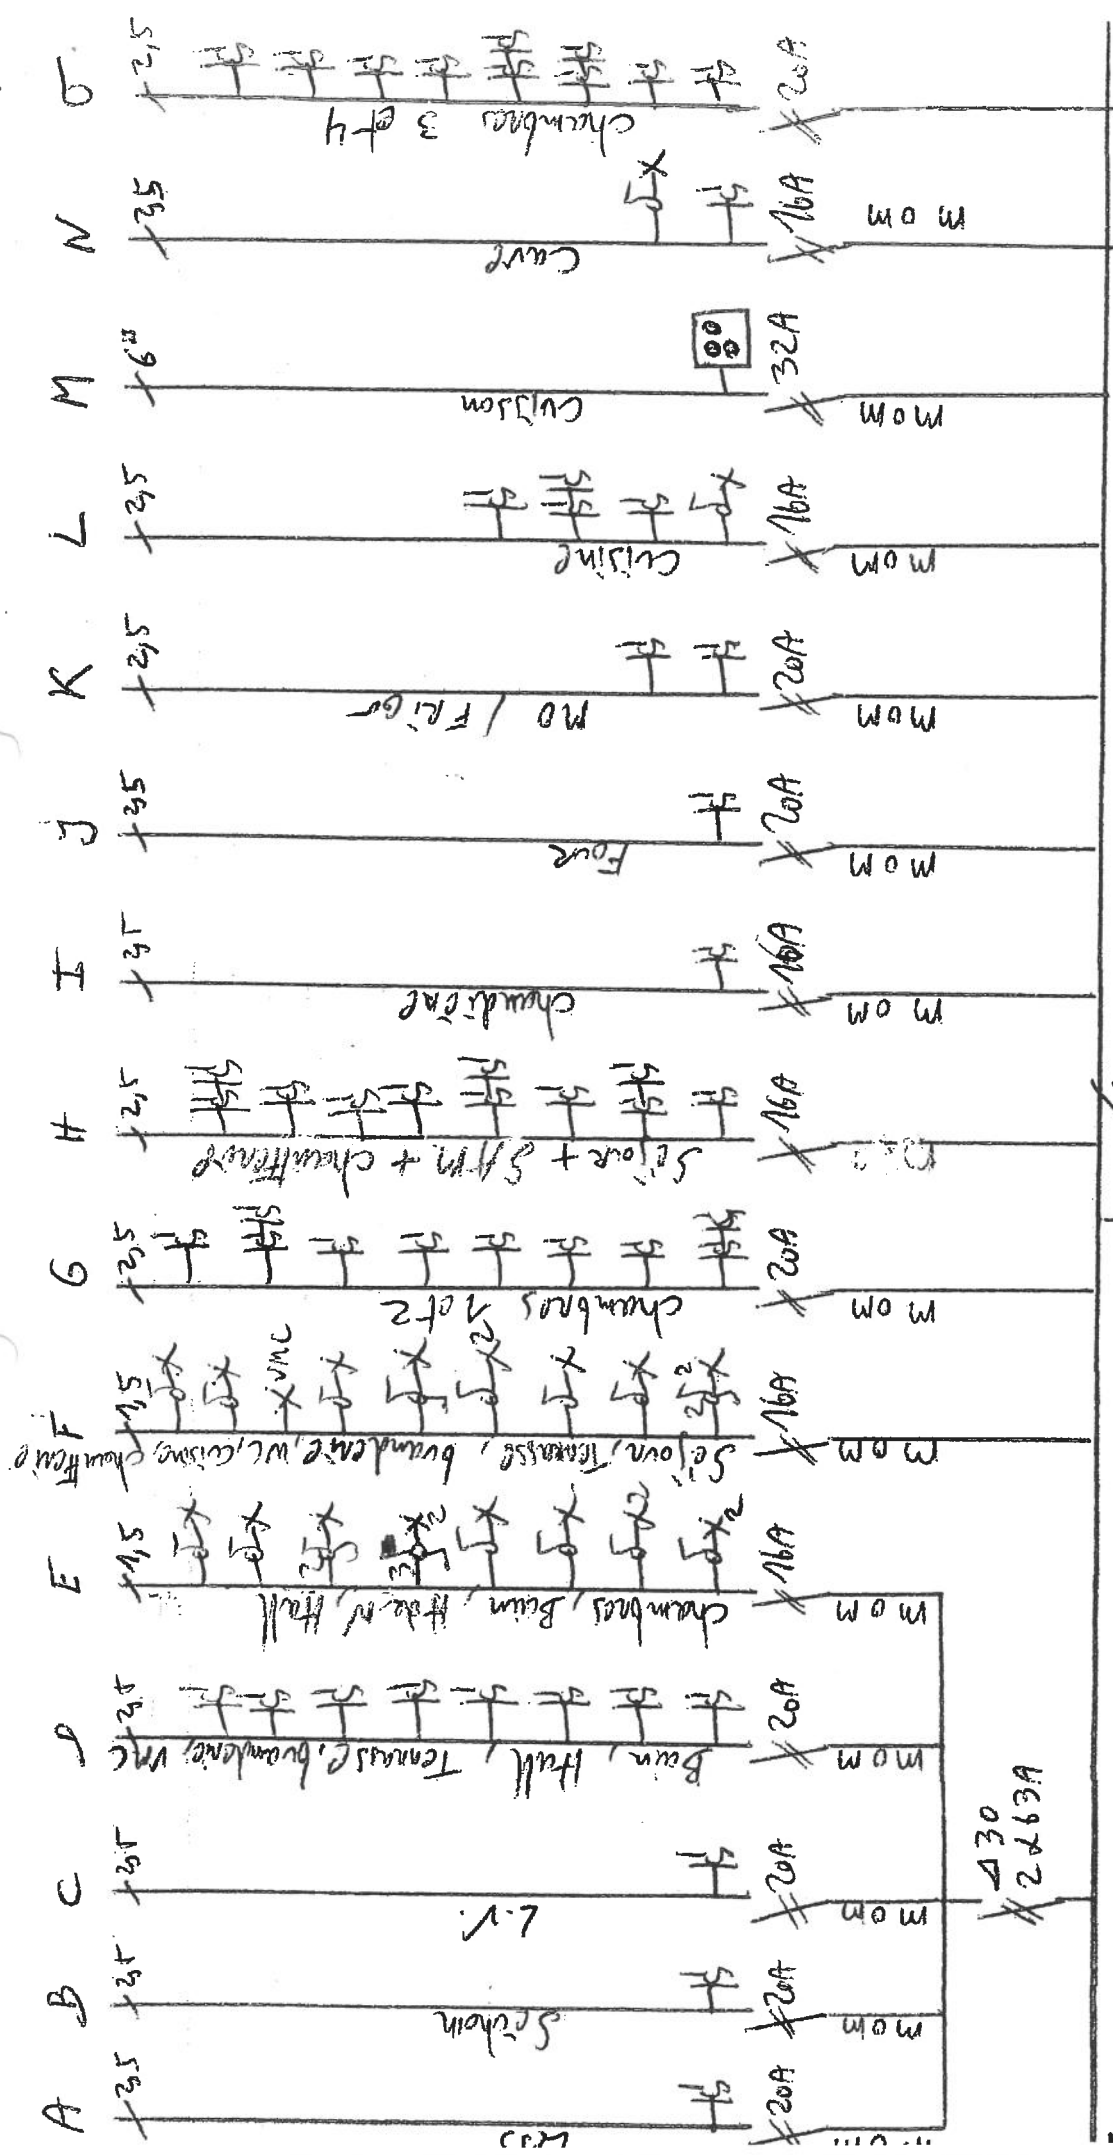 A
2,5
20A
B
2,5
Séchoir
20A
mom
C
2,5
L.V.
20A
mom
D
2,5
Bain, Hall, Terrasse, buanderie, VMC
20A
mom
Δ30
2x63A
E
1,5
3
3
2
2
2
chambres, Bain, H de N, Hall
16A
mom
F
1,5
VMC
2
2
2
Séjour, Terrasse, buanderie, WC, cuisine, chaufferie
16A
mom
G
2,5
chambres 1 et 2
20A
mom
H
2,5
Séjour + SAM + chaufferie
16A
I
2,5
chaudière
16A
mom
J
2,5
Four
20A
mom
K
2,5
MO / FRIGO
20A
mom
L
2,5
Cuisine
16A
mom
M
6²
Cuisson
32A
mom
N
2,5
Cave
16A
mom
O
2,5
chambres 3 et 4
20A